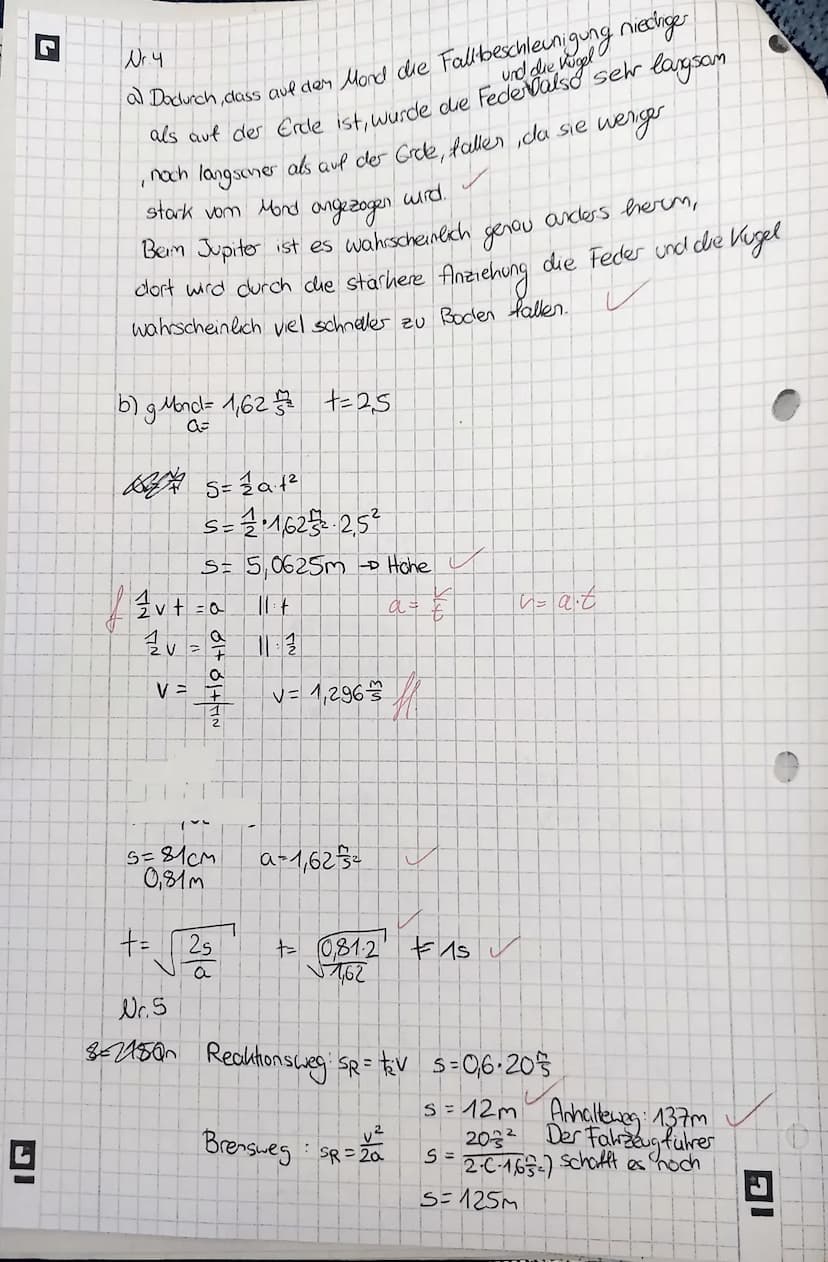 Nr 4
a) Dadurch, dass auf dem Mond die Fallbeschleunigung niedriger
als auf der Erde ist, wurde die Feder und die Kugel also sehr langsam
, noch langsamer als auf der Erde, fallen, da sie weniger
stark vom Mond angezogen wird. ✓
Beim Jupiter ist es wahrscheinlich genau anders herum,
dort wird durch die stärkere Anziehung die Feder und die Kugel
wahrscheinlich viel schneller zu Boden fallen. ✓
b) g Mond= 1,62 m/s² t=2,5
a=
s= 1/2 a·t²
s= 1/2 · 1,62 m/s² · 2,5²
s= 5,0625m → Höhe ✓
f 1/2 v t = a ||:t a= v/t v= a·t
1/2 v = a/t ||: 1/2
v = a/t / 1/2 v= 1,296 m/s ff.
s= 81cm a=1,62 m/s² ✓
0,81m
t= √(2s/a) t= √(0,81·2/1,62) ✓ t= 1s ✓
Nr. 5
Reaktionsweg: sR = tR v s=0,6·20 m/s
s = 12m ✓ Anhalteweg: 137m ✓
Bremsweg : sR = v²/2a s = 20 m/s ² / 2·(-1,6 m/s²) Der Fahrzeugführer
schafft es noch
s= 125m